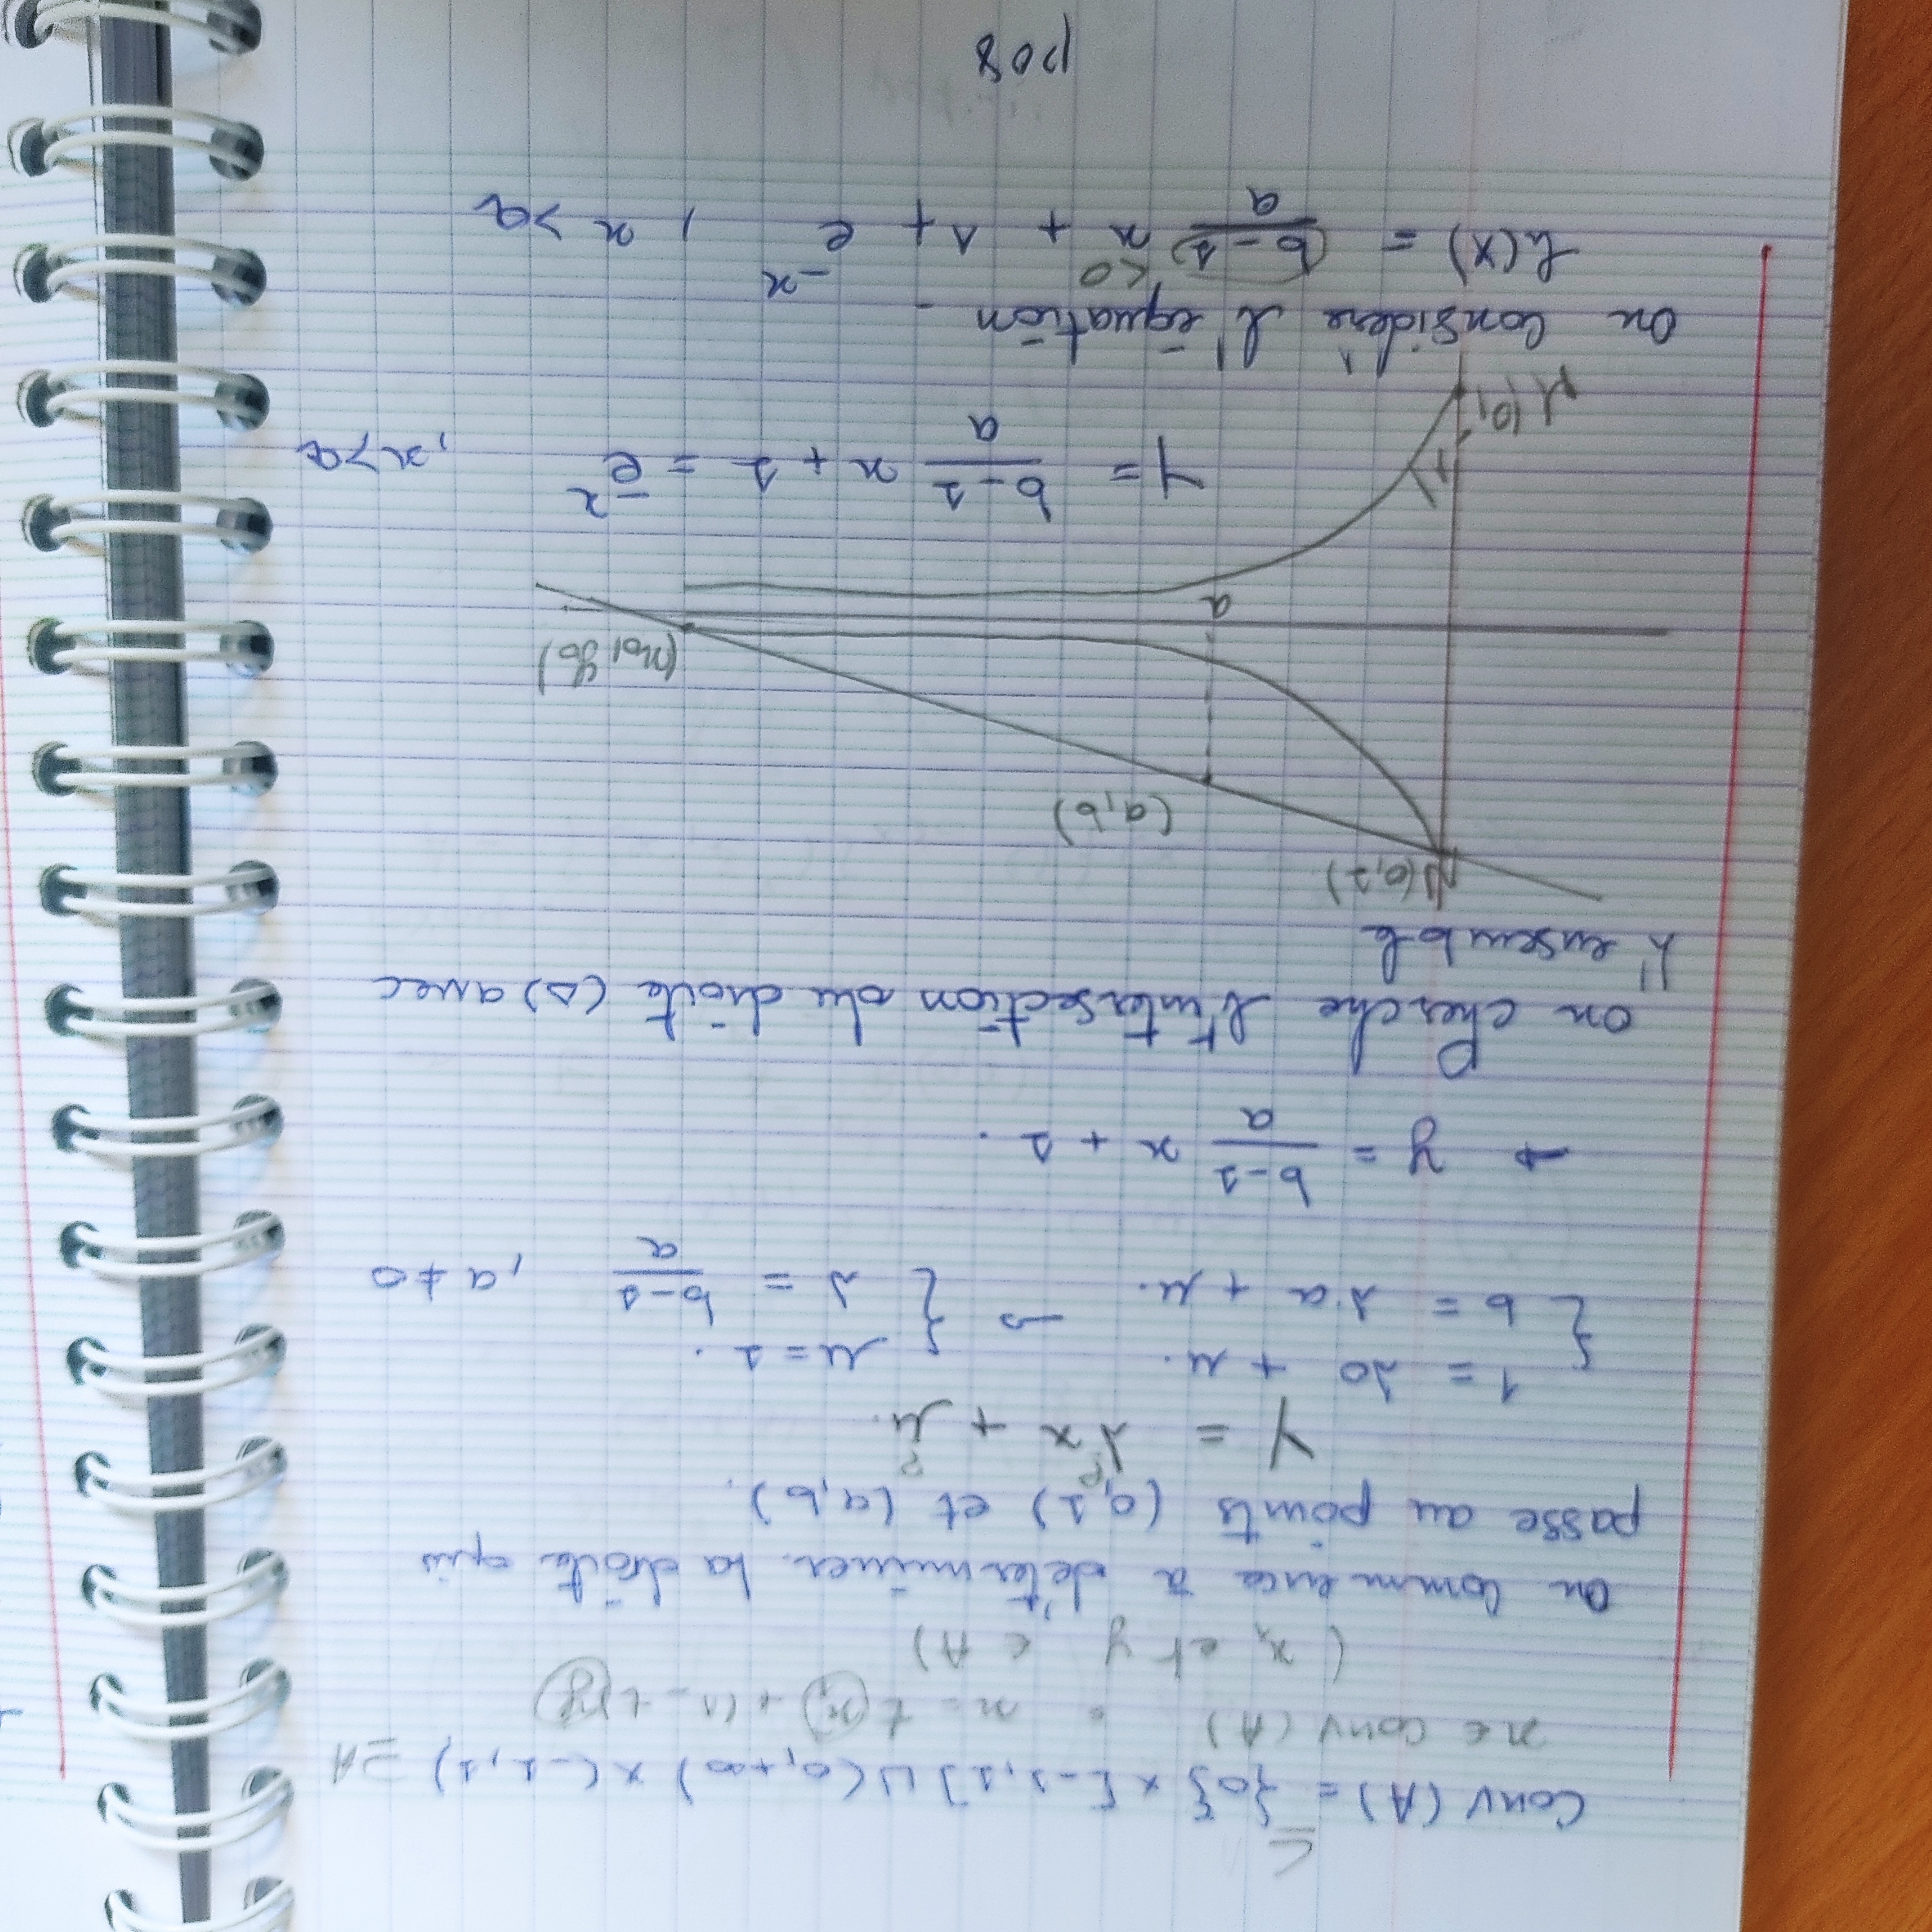 ⊆
Conv (A) = {0} × [-1, 1] ∪ (0, +∞) × (-1, 1) ⊇ A
x ∈ conv (A) x = t x₁ + (1 - t) y
( x₁ et y ∈ A )
On commence à déterminer la droite qui
passe au points (0, 1) et (a, b).
Y = λx + μ.
? ?
1 = λ0 + μ. μ = 1.
{ b = λ.a + μ. → { λ = (b-1)/a , a ≠ 0
→ y = (b-1)/a x + 1.
On cherche l'intersection du droite (Δ) avec
l'ensemble
N(0,1)
(a, b)
(x₀, y₀)
a
M(0,-1)
Y = (b-1)/a x + 1 = e^-x , x > a
On considère l'équation
h(x) = (b-1)/a x + 1 + e^-x , x > a
< 0
p08